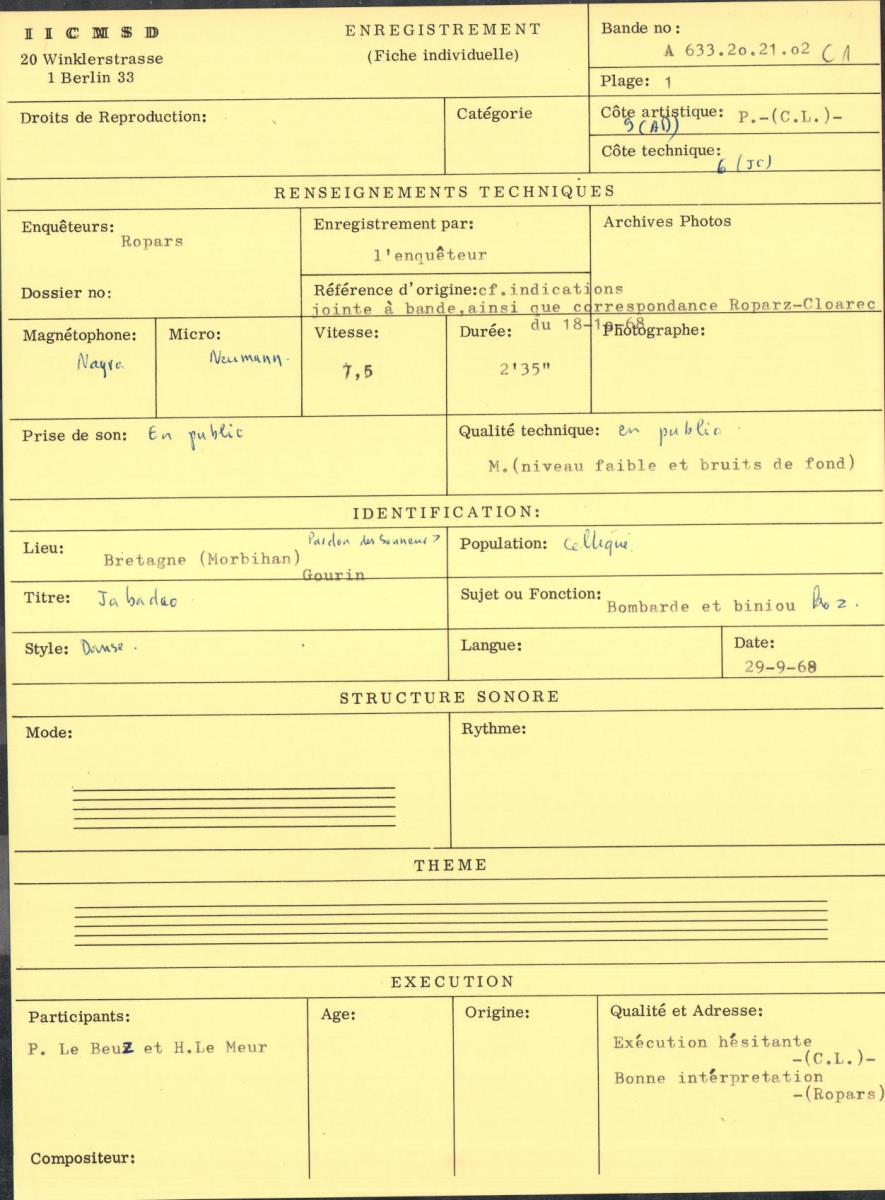 IICMSD
20 Winklerstrasse
1 Berlin 33
ENREGISTREMENT
(Fiche individuelle)
Bande no :
A 633.2o.21.o2 C1
Plage: 1
Droits de Reproduction:
Catégorie
Côte artistique: P.-(C.L.)-
5(AD)
Côte technique:
6 (JC)
RENSEIGNEMENTS TECHNIQUES
Enquêteurs:
Ropars
Enregistrement par:
l'enquêteur
Archives Photos
Dossier no:
Référence d'origine:cf.indications
jointe à bande,ainsi que correspondance Roparz-Cloarec
du 18-1o-68
Magnétophone:
Nagra
Micro:
Neumann.
Vitesse:
7,5
Durée:
2'35"
Photographe:
Prise de son: En public
Qualité technique: en public
M.(niveau faible et bruits de fond)
IDENTIFICATION:
Lieu:
Pardon des Sonneurs
Bretagne (Morbihan)
Gourin
Population: Celtique
Titre: Jabadao
Sujet ou Fonction:
Bombarde et biniou koz.
Style: Danse.
Langue:
Date:
29-9-68
STRUCTURE SONORE
Mode:
Rythme:
THEME
EXECUTION
Participants:
P. Le Beuz et H.Le Meur
Age:
Origine:
Qualité et Adresse:
Exécution hésitante
-(C.L.)-
Bonne intérpretation
-(Ropars)
Compositeur: